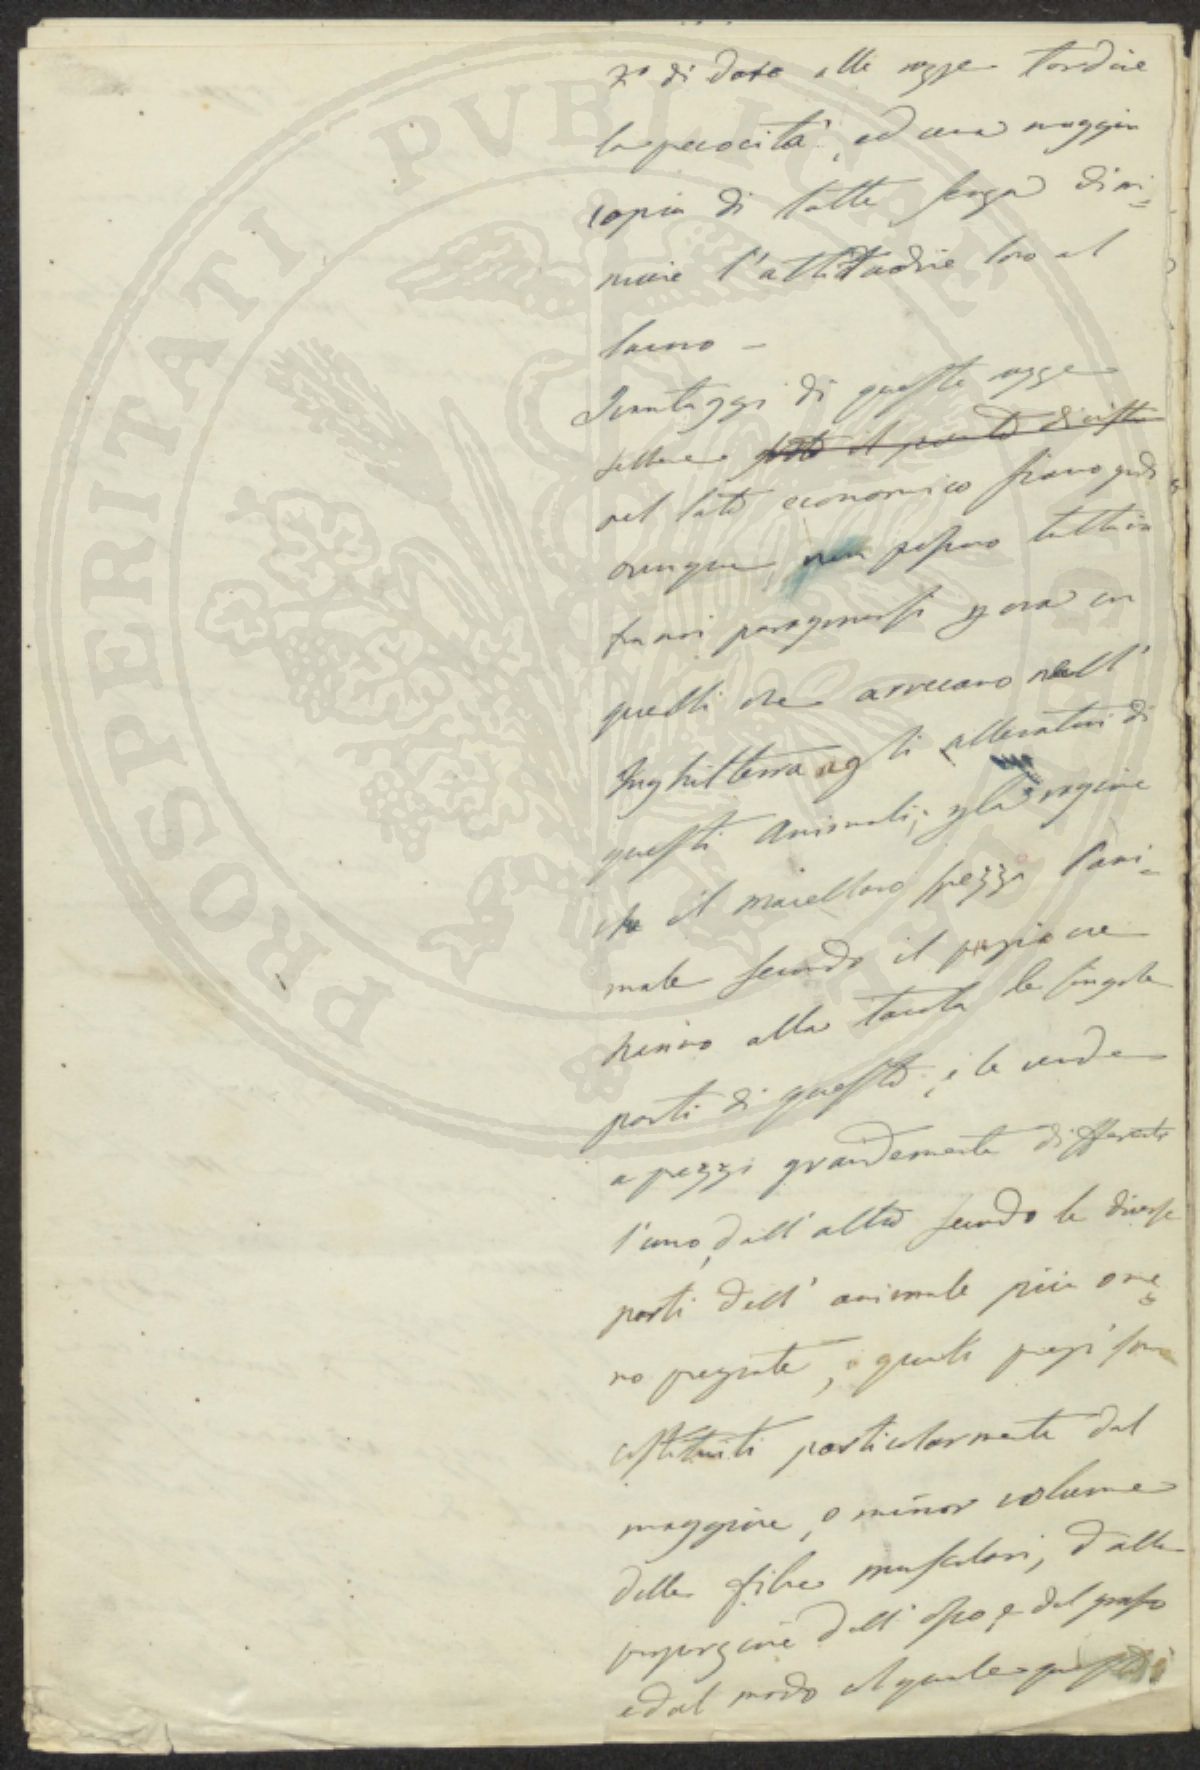 PROSPERITATI PUBLICAE
3° di dare alle razze tardive
la precocità, ed una maggior
copia di latte senza dimi=
nuire l'attitudine loro al
lavoro –
I vantaggi di queste razze
sotto il punto di vista
nel lato economico siano qual
dunque non possono tuttavia
fra noi paragonarsi per ora con
quelli che arrecano nell'
Inghilterra agli allevatori di
questi animali; per la ragione
che il macellaro spezza l'ani=
male secondo il pregio che
hanno alla tavola le singole
parti di questo, e le vende
a prezzi grandemente differenti
l'uno, dall'altro secondo le diverse
parti dell'animale più o me=
no pregiate, i quali pregi sono
costituiti particolarmente dal
maggiore, o minor volume
delle fibre muscolari, dalla
proporzione dell'osso, e del grasso
e dal modo al quale questo è